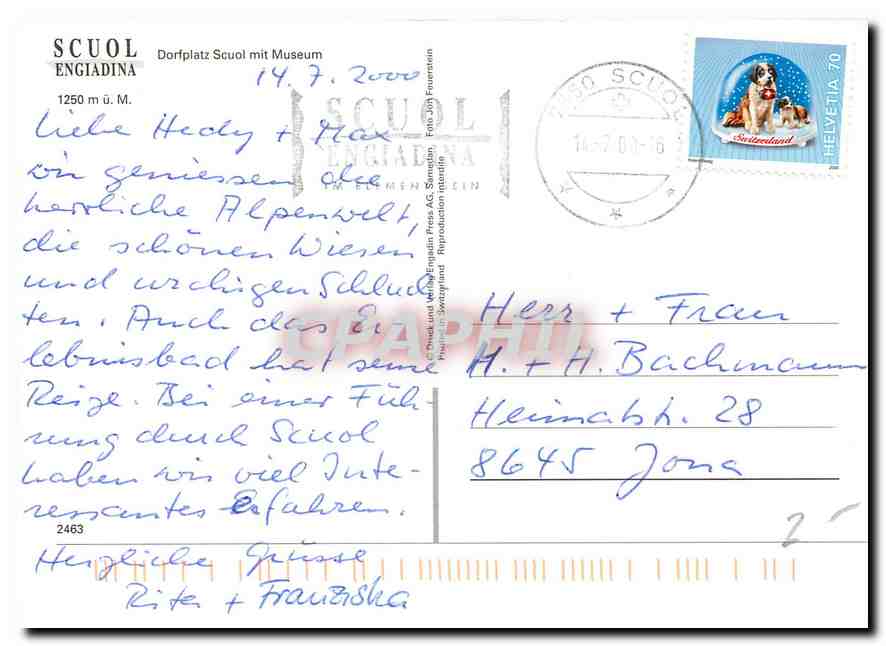 SCUOL
ENGIADINA
Dorfplatz Scuol mit Museum
1250 m ü. M.
14.7.2000
Liebe Hedy + Max
wir geniessen die
herrliche Alpenwelt,
die schönen Wiesen
und urchigen Schluch
ten. Auch das Er
lebnisbad hat seine
Reize. Bei einer Füh-
rung durch Scuol
haben wir viel Inte-
ressantes erfahren.
2463
Herzliche Grüsse
Rita + Franziska
SCUOL
ENGIADINA
© Druck und Verlag Engadin Press AG, Samedan Foto Jon Feuerstein
Printed in Switzerland Reproduction interdite
7550 SCUOL
HELVETIA 70
Switzerland
Herr + Frau
H. + H. Bachmann
Heimatstr. 28
8645 Jona
CPAPHIL
2